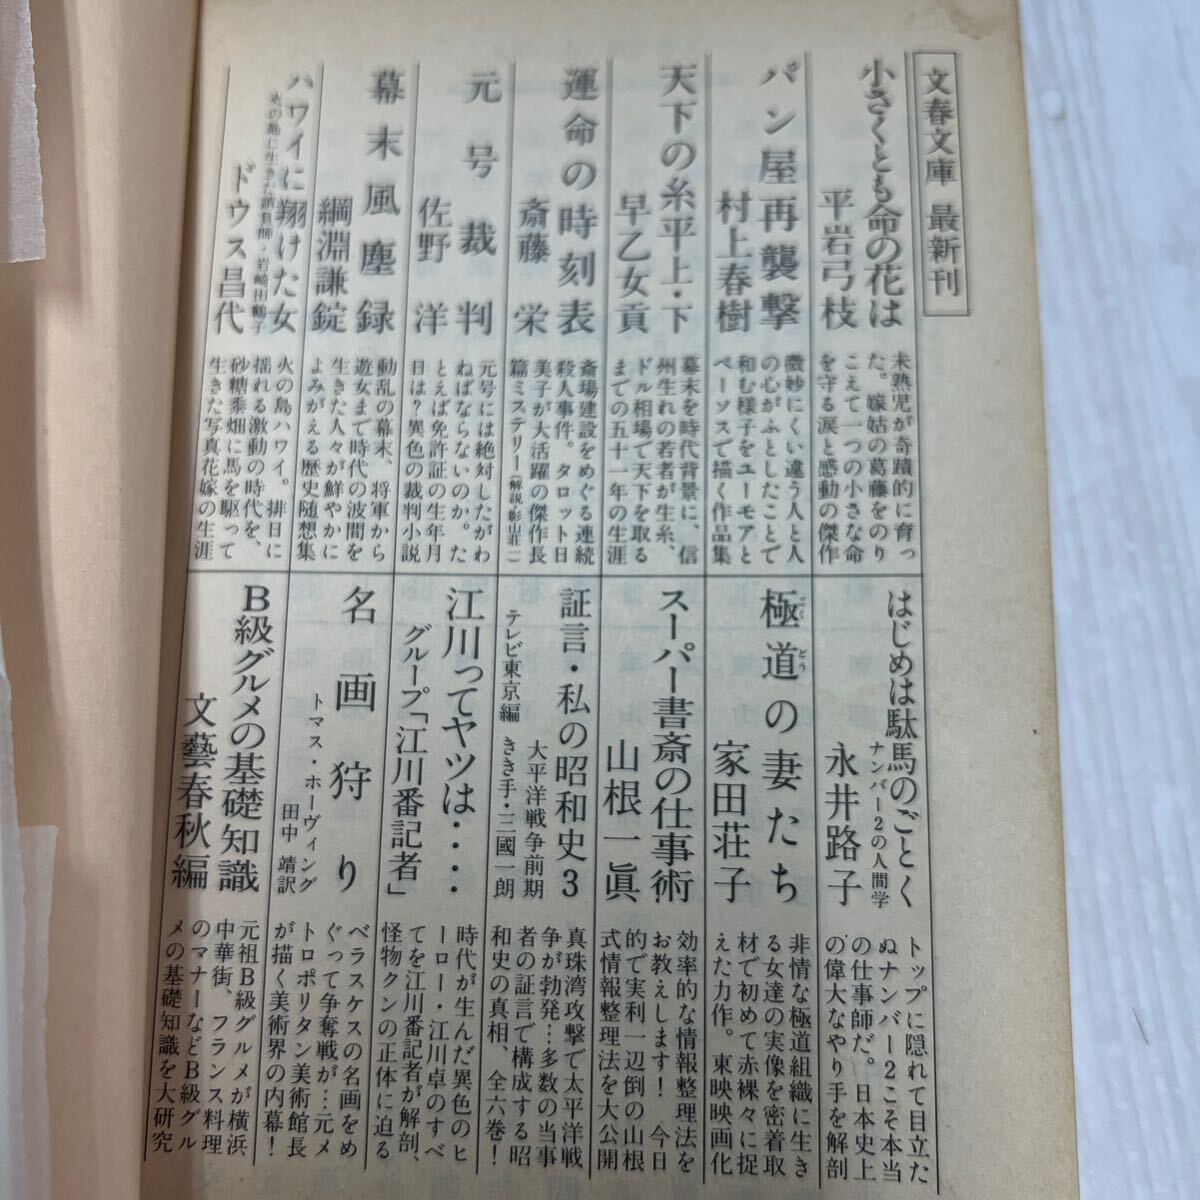 文春文庫 最新刊
小さくとも命の花は
平岩弓枝
未熟児が奇蹟的に育っ
た。嫁姑の葛藤をのり
こえて一つの小さな命
を守る涙と感動の傑作
パン屋再襲撃
村上春樹
微妙にくい違う人と人
の心がふとしたことで
和む様子をユーモアと
ペーソスで描く作品集
天下の糸平 上・下
早乙女貢
幕末を時代背景に、信
州生れの若者が生糸、
ドル相場で天下を取る
までの五十一年の生涯
運命の時刻表
斎藤 栄
斎場建設をめぐる連続
殺人事件。タロット日
美子が大活躍の傑作長
篇ミステリー(解説・影山荘一)
元号裁判
佐野 洋
元号には絶対したがわ
ねばならないのか。た
とえば免許証の生年月
日は?異色の裁判小説
幕末風塵録
綱淵謙錠
動乱の幕末、将軍から
遊女まで時代の波間を
生きた人々が鮮やかに
よみがえる歴史随想集
ハワイに翔けた女
火の島に生きた請負師・岩崎田鶴子
ドウス昌代
火の島ハワイ。排日に
揺れる激動の時代を、
砂糖黍畑に馬を駆って
生きた写真花嫁の生涯
はじめは駄馬のごとく
ナンバー2の人間学
永井路子
トップに隠れて目立た
ぬナンバー2こそ本当
の仕事師だ。日本史上
の偉大なやり手を解剖
極道の妻たち
ごくどう
家田荘子
非情な極道組織に生き
る女達の実像を密着取
材で初めて赤裸々に捉
えた力作。東映映画化
スーパー書斎の仕事術
山根一眞
効率的な情報整理法を
お教えします!今日
的で実利一辺倒の山根
式情報整理法を大公開
証言・私の昭和史3
太平洋戦争前期
テレビ東京編 きき手・三國一朗
真珠湾攻撃で太平洋戦
争が勃発…多数の当事
者の証言で構成する昭
和史の真相、全六巻!
江川ってヤツは・・・・
グループ「江川番記者」
時代が生んだ異色のヒ
ーロー・江川卓のすべ
てを江川番記者が解剖、
怪物クンの正体に迫る
名画狩り
トマス・ホーヴィング
田中 靖訳
ベラスケスの名画をめ
ぐって争奪戦が…元メ
トロポリタン美術館長
が描く美術界の内幕!
B級グルメの基礎知識
文藝春秋編
元祖B級グルメが横浜
中華街、フランス料理
のマナーなどB級グル
メの基礎知識を大研究